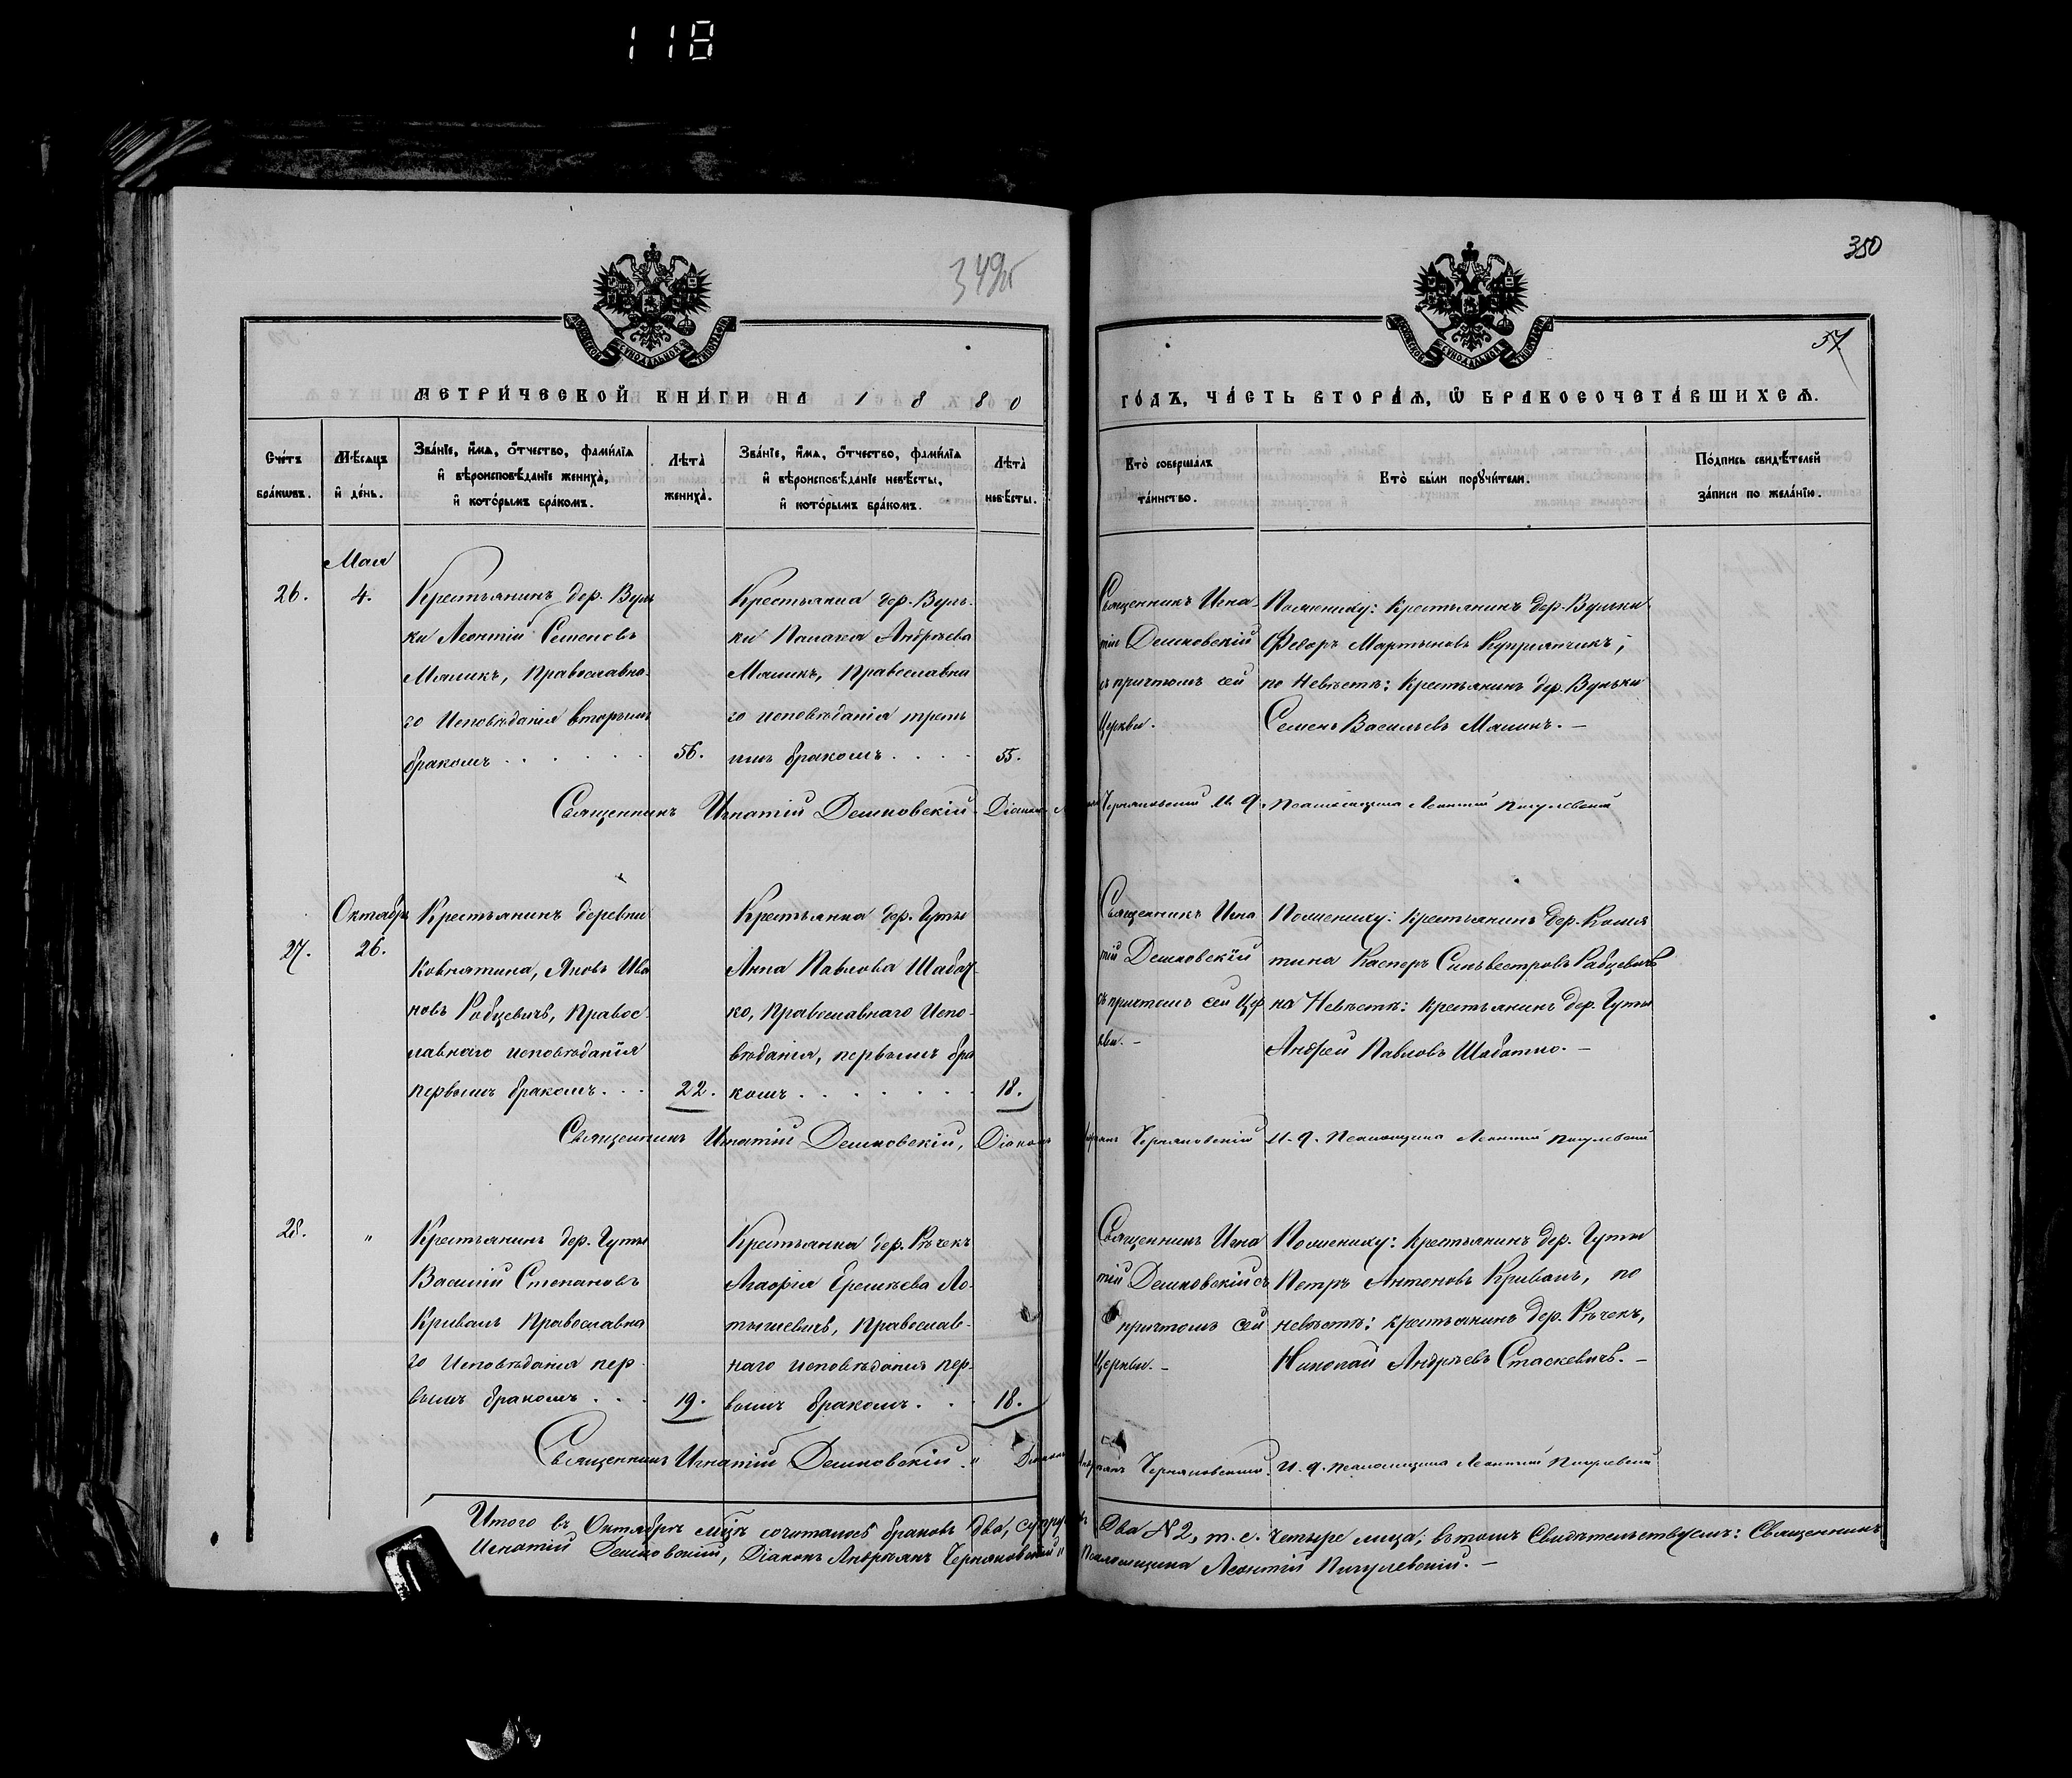 118
349об
350
57
МЕТРИ́ЧЕСКОЙ КНИ́ГИ НА 1880
ГО́ДЪ, ЧА́СТЬ ВТОРА́Ѧ, Ѡ҆ БРАКОСОЧЕТА́ВШИХСѦ.
Сче́тъ бра́кωвъ.
Мѣ́сѧцъ и҆ де́нь.
Зва́нїе, и҆́мѧ, о҆́тчество, фами́лїѧ
и҆ вѣроисповѣ́данїе жениха̀,
и҆ кото́рымъ бра́комъ.
Лѣта̀ жениха̀.
Зва́нїе, и҆́мѧ, о҆́тчество, фами́лїѧ
и҆ вѣроисповѣ́данїе невѣ́сты,
и҆ кото́рымъ бра́комъ.
Лѣта̀ невѣ́сты.
Кто̀ соверша́лъ та́инство.
Кто̀ бы́ли порꙋчи́тели.
По́дпись свидѣ́телей
за́писи по жела́нїю.
26.
Мая
4.
Крестьянинъ дер. Вуль
ки Леонтій Семеновъ
Маликъ, Православна-
го Исповѣданія вторымъ
бракомъ
56.
Крестьянка дер. Вуль-
ки Андрѣева
Малика, Православна
го исповѣданія треть
имъ бракомъ
55.
Священникъ Игна-
тій Демковскій
съ причтомъ сей
Церкви.
По жениху: Крестьянинъ дер. Вульки
Федоръ Мартыновъ Купріянчикъ;
по Невѣстѣ: Крестьянинъ дер. Вульки
Семенъ Васильевъ Маликъ. —
Священникъ Игнатій Демковскій. Діаконъ Черняковскій И. д. Псаломщика Леонтій Пигулевскій
27.
Октябрь
26.
Крестьянинъ деревни
Ковнятина, Яковъ Ива
новъ Рабцевичъ, Правос-
лавнаго исповѣданія
первымъ бракомъ
22.
Крестьянка дер. Гуты
Анна Павлова Шабат-
ко, Православнаго Испо-
вѣданія, первымъ бра
комъ
18.
Священникъ Игна
тій Демковскій
съ причтомъ сей Цер
кви. —
По жениху: Крестьянинъ дер.
тина Касперъ Сильвестровъ Рабцевичъ
на Невѣстѣ: Крестьянинъ дер. Гуты
Андрей Павловъ Шабатко. —
Священникъ Игнатій Демковскій, Діаконъ Черняковскій И. д. Псаломщика Леонтій Пигулевскій
28.
"
Крестьянинъ дер. Гуты
Василій Степановъ
Криваль Православна
го Исповѣданія пер-
вымъ бракомъ
19.
Крестьянка дер. Рѣчекъ
Агафія Еремѣева Ло-
тышевичъ, Православ-
наго исповѣданія пер-
вымъ бракомъ
18.
Священникъ Игна
тій Демковскій съ
причтомъ сей
Церкви. —
По жениху: Крестьянинъ дер. Гуты
Петръ Антоновъ Криваль, по
невѣстѣ: Крестьянинъ дер. Рѣчекъ,
Николай Андрѣевъ Стаскевичъ. —
Священникъ Игнатій Демковскій. Діаконъ Черняковскій. И. д. Псаломщика Леонтій Пигулевскій
Итого въ Октябрѣ м-цѣ сочеталось браковъ Два, Два № 2, т. е. Четыре лица; въ томъ Свидѣтельствуемъ: Священникъ
Игнатій Демковскій, Діаконъ Андріанъ Черняковскій Псаломщика Леонтій Пигулевскій. —